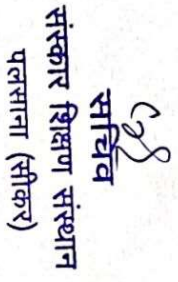 सचिव
संस्कार शिक्षण संस्थान
पलसाना (सीकर)